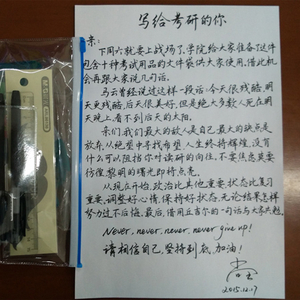 写给考研的你
亲:
下周六就要上战场了,学院给大家准备了这件
包含十种考试用品的文件袋供大家使用,借此机
会再跟大家说几句话。
马云曾经说过这样一段话:今天很残酷,明
天更残酷,后天很美好,但是绝大多数人死在明
天晚上,看不到后天的太阳。
亲们,我们最大的敌人是自己,最大的缺点是
放弃,从绝望中寻找希望,人生终将辉煌,没有
什么可以阻挡你对读研的向往,不要焦急莫要
彷徨,黎明的曙光即将来亮。
从现在开始,政治比其他重要,状态比复习
重要,调整好心情,保持好状态,无论结果怎样
努力过不后悔。最后,借用丘吉尔的一句话与大家共勉。
Never, never, never, never give up!
请相信自己,坚持到底,加油!
2015.12.17